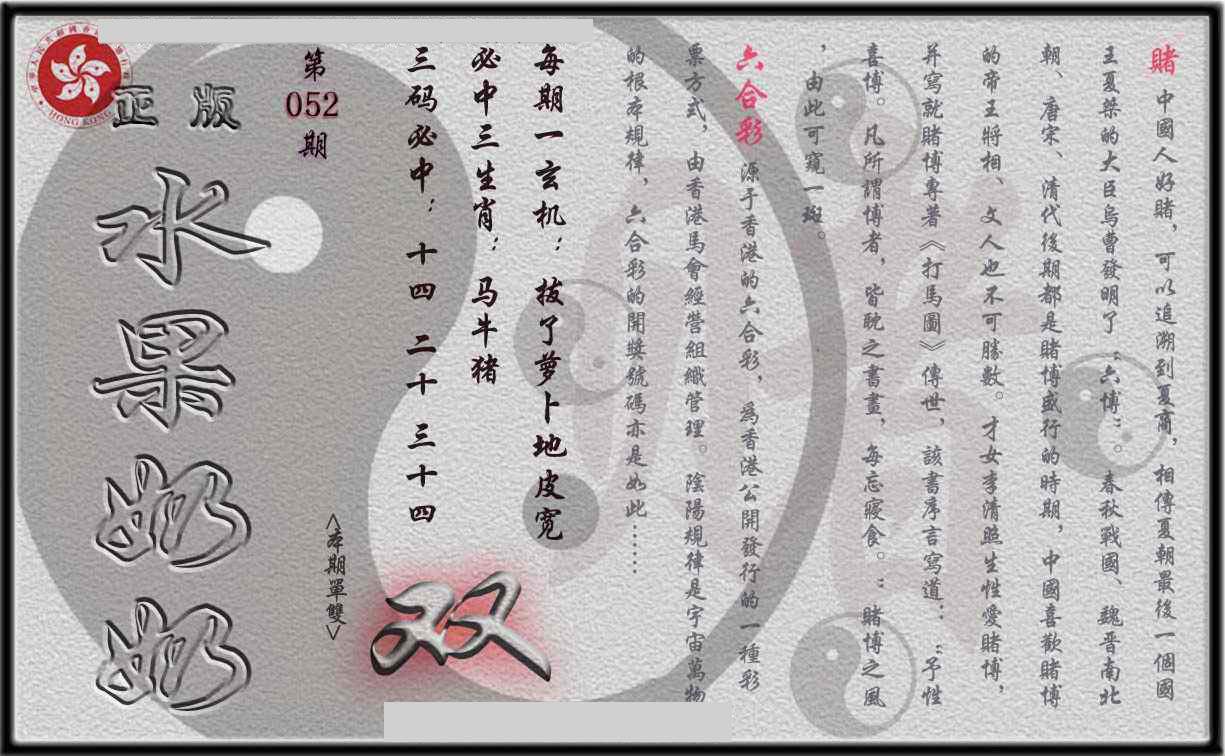 賭 中國人好賭，可以追溯到夏商，相傳夏朝最後一個國
王夏桀的大臣烏曹發明了“六博”。春秋戰國、魏晉南北
朝、唐宋、清代後期都是賭博盛行的時期，中國喜歡賭博
的帝王將相、文人也不可勝數。才女李清照生性愛賭博，
并寫就賭博專著《打馬圖》傳世，該書序言寫道：“予性
喜博。凡所謂博者，皆耽之書畫，每忘寢食。”賭博之風
，由此可窺一斑。
六合彩 源于香港的六合彩，為香港公開發行的一種彩
票方式，由香港馬會經營組織管理。陰陽規律是宇宙萬物
的根本規律，六合彩的開獎號碼亦是如此……
每期一玄机：拔了萝卜地皮宽
必中三生肖：马牛猪
三码必中：十四 二十 三十四
双
<本期單雙>
第052期
正版
水果奶奶
HONG KONG